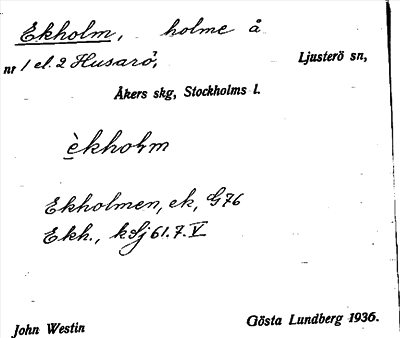 Ekholm, holme å
nr 1 el. 2 Husarö, Ljusterö sn,
Åkers skg, Stockholms l.
èkhoɫm
Ekholmen, ek, G76
Ekh., kSj 61.7.V
John Westin Gösta Lundberg 1936.